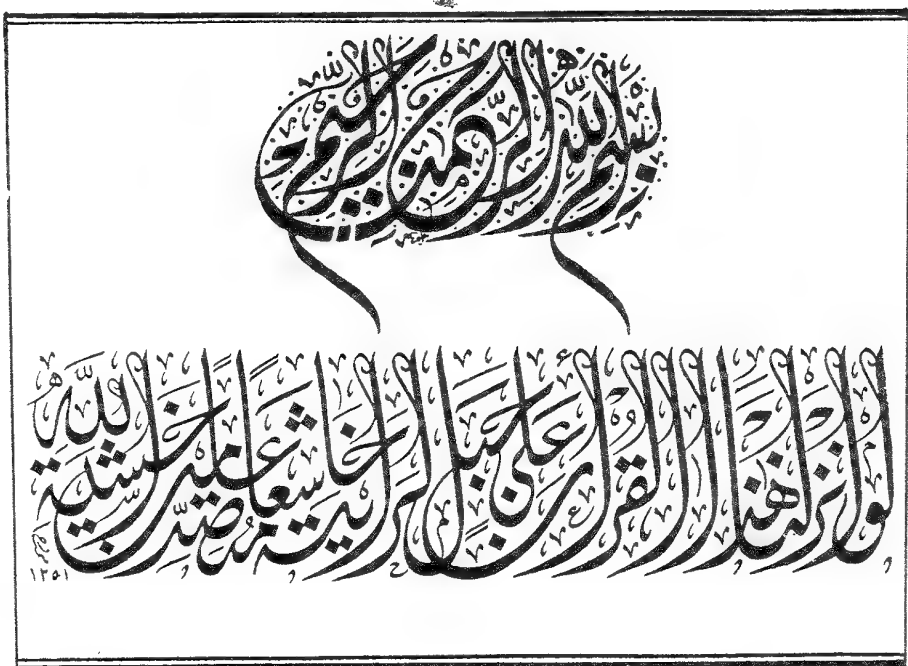 بسم الله الرحمن الرحيم
لو أنزلنا هذا القرآن على جبل لرأيته خاشعا متصدعا من خشية الله
١٢٥١